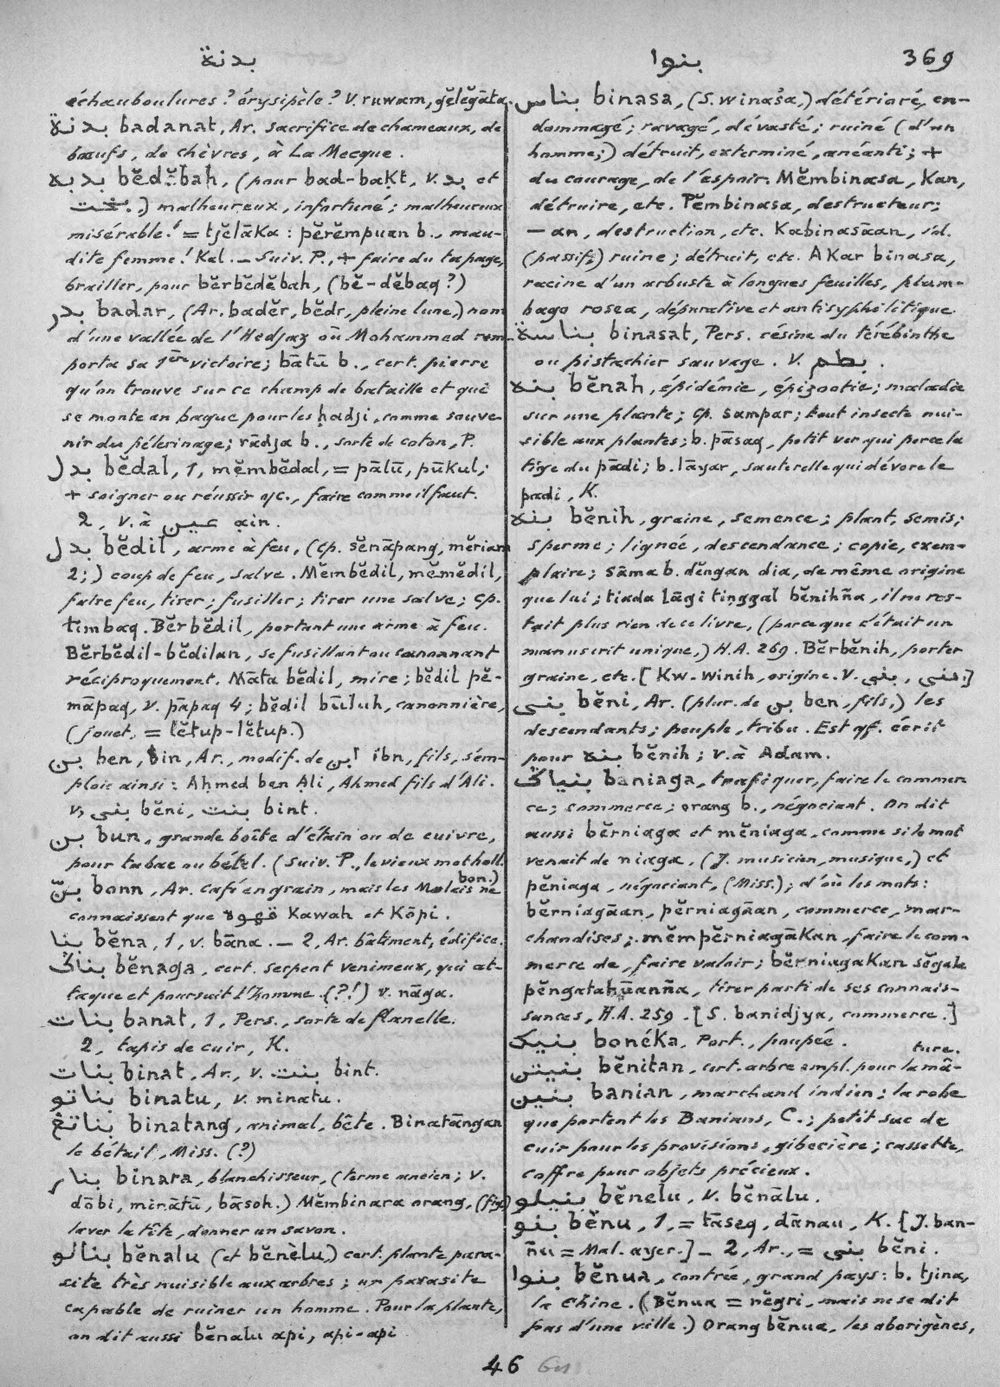 بدنة
بنوا
369
échauboulures? érysipèle? V. ruwam, gĕlĕgāta.
بدنة badanat, Ar. sacrifice de chameaux, de
bœufs, de chèvres, à La Mecque.
بدبه bĕdĕbah, (pour bad-bakt, v. بد et
بخت.) malheureux, infortuné; malheureux
misérable! = tjĕlāka: pĕrĕmpuan b., mau-
dite femme! Kal. — Suiv. P., + faire du tapage,
brailler, pour bĕrbĕdĕbah, (bĕ-dĕbaq?)
بدر badar, (Ar. badĕr, bĕdr, pleine lune,) nom
d'une vallée de l'Hedjaz où Mohammed rem-
porta sa 1ère victoire; bātū b., cert. pierre
qu'on trouve sur ce champ de bataille et qui
se monte en bague pour les hadji, comme souve-
nir du pélerinage; rādja b., sorte de coton, P.
بدل bĕdal, 1, mĕmbĕdal, = pālū, pūkul;
+ soigner ou réussir qc., faire comme il faut.
2, v. à عين ain.
بدل bĕdil, arme à feu, (cp. sĕnāpang, mĕriam
2;) coup de feu, salve. Mĕmbĕdil, mĕmĕdil,
faire feu, tirer; fusiller; tirer une salve; cp.
timbaq. Bĕrbĕdil, portant une arme à feu.
Bĕrbĕdil-bĕdilan, se fusillant ou canonnant
réciproquement. Māta bĕdil, mire; bĕdil pĕ-
māpaq, v. pāpaq 4; bĕdil būluh, canonnière,
(jouet, = lĕtup-lĕtup.)
بن ben, bin, Ar., modif. de ابن ibn, fils, s'em-
ploie ainsi: Ahmed ben Ali, Ahmed fils d'Ali.
V. بنى bĕni, بنت bint.
بن bun, grande boîte d'étain ou de cuivre,
pour tabac ou bétel. (Suiv. P., le vieux mot holl.
bon.)
بنّ bonn, Ar. café en grain, mais les Malais ne
connaissent que قهوه Kawah et Kōpi.
بنا bĕna, 1, v. bāna. — 2, Ar. bâtiment, édifice.
بناݢ bĕnaga, cert. serpent venimeux, qui at-
taque et poursuit l'homme. (?!) v. nāga.
بنات banat, 1, Pers., sorte de flanelle.
2, tapis de cuir, K.
بنات binat, Ar., v. بنت bint.
بناتو binatu, v. minatu.
بناتڠ binatang, animal, bête. Binatāngan
le bétail, Miss. (?)
بنار binara, blanchisseur, (terme ancien; v.
dōbi, minātū, bāsoh.) Mĕmbinara orang, (fig.)
laver la tête, donner un savon.
بنالو bĕnalu (et bĕnèlu,) cert. plante para-
site très nuisible aux arbres; un parasite
capable de ruiner un homme. Pour la plante,
on dit aussi bĕnalu api, api-api
بناس binasa, (S. winaśa,) détérioré, en-
dommagé; ravagé, dévasté; ruiné (d'un
homme;) détruit, exterminé, anéanti; +
du courage, de l'espoir. Mĕmbinasa, Kan,
détruire, etc. Pĕmbinasa, destructeur;
— an, destruction, etc. Kabinasāan, id.
(passif;) ruine; détruit, etc. AKar binasa,
racine d'un arbuste à longues feuilles, plum-
bago rosea, dépurative et antisyphilitique.
بناسة binasat, Pers. résine du térébinthe
ou pistachier sauvage. V. بطم.
بنه bĕnah, épidémie, épizootie; maladie
sur une plante; cp. sampar; tout insecte nui-
sible aux plantes; b. pāsaq, petit ver qui perce la
tige du pādi; b. lāyar, sauterelle qui dévore le
padi, K.
بنه bĕnih, graine, semence; plant, semis;
sperme; lignée, descendance; copie, exem-
plaire; sāma b. dĕngan dia, de même origine
que lui; tiada lāgi tinggal bĕnihña, il ne res-
tait plus rien de ce livre, (parce que c'était un
manuscrit unique,) H.A. 269. Bĕrbĕnih, porter
graine, etc. [Kw. winih, origine. V. بنى, منى.]
بنى bĕni, Ar. (plur. de بن ben, fils,) les
descendants; peuple, tribu. Est qf. écrit
pour بنه bĕnih; v. à Adam.
بنياݢ baniaga, trafiquer, faire le commer-
ce; commerce; orang b., négociant. On dit
aussi bĕrniaga et mĕniaga, comme si le mot
venait de niaga, (J. musicien, musique,) et
pĕniaga, négociant, (Miss.); d'où les mots:
bĕrniagāan, pĕrniagāan, commerce, mar-
chandises; mĕmpĕrniagāKan, faire le com-
merce de, faire valoir; bĕrniagaKan sĕgala
pĕngatahūanña, tirer parti de ses connais-
sances, H.A. 259. [S. banidjya, commerce.]
بنيك bonéka, Port., poupée.
بنيتن bĕnitan, cert. arbre empl. pour la mâ-
ture.
بنين banian, marchand indien; la robe
que portent les Banians, C.; petit sac de
cuir pour les provisions, gibecière; cassette,
coffre pour objets précieux.
بنيلو bĕnelu, v. bĕnālu.
بنو bĕnu, 1, = tāseq, dānau, K. [J. ban-
ñu = Mal. ayer.] — 2, Ar., = بنى bĕni.
بنوا bĕnua, contrée, grand pays: b. tjina,
la Chine. (Bĕnua = nĕgri, mais ne se dit
pas d'une ville.) Orang bĕnua, les aborigènes,
46